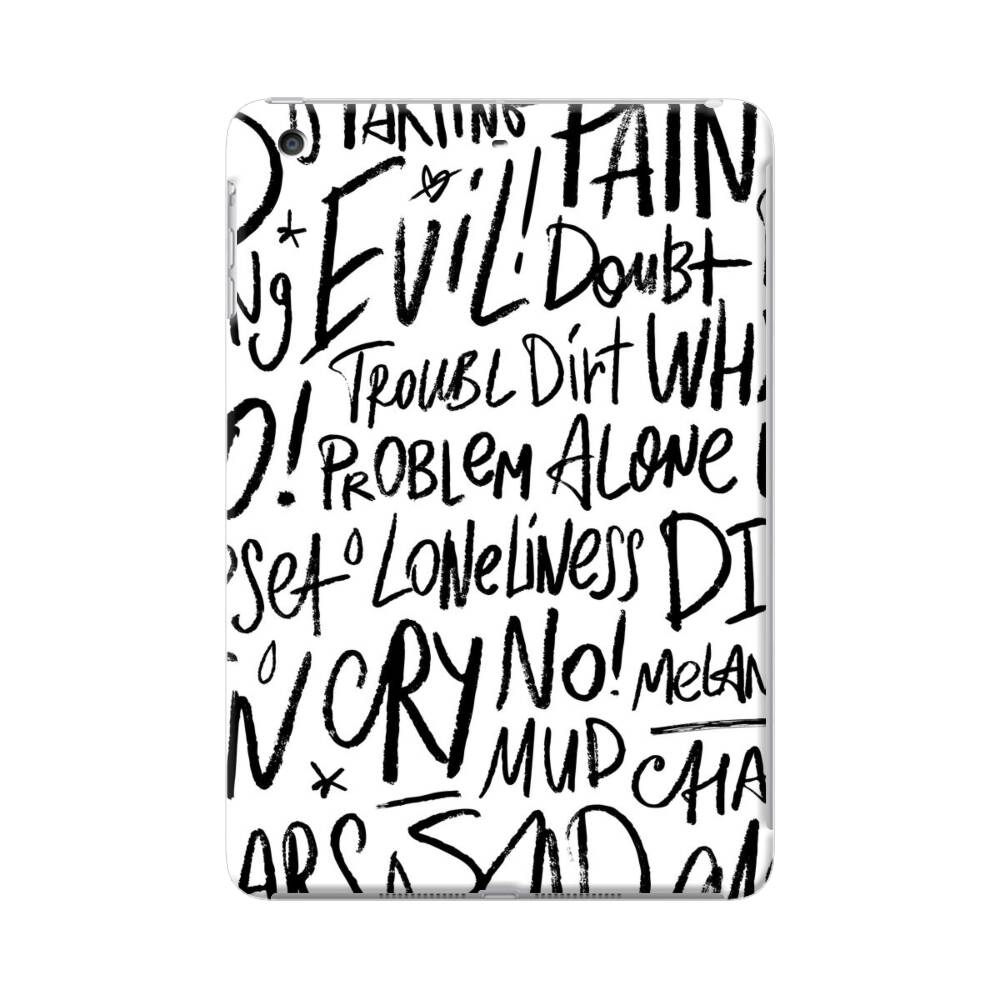 PAIN
EVIL! Doubt
TROUBL Dirt WHA
PROBLEM ALONE
SET LONELINESS DI
CRY NO! MELAN
MUD CHA
ARS SAD